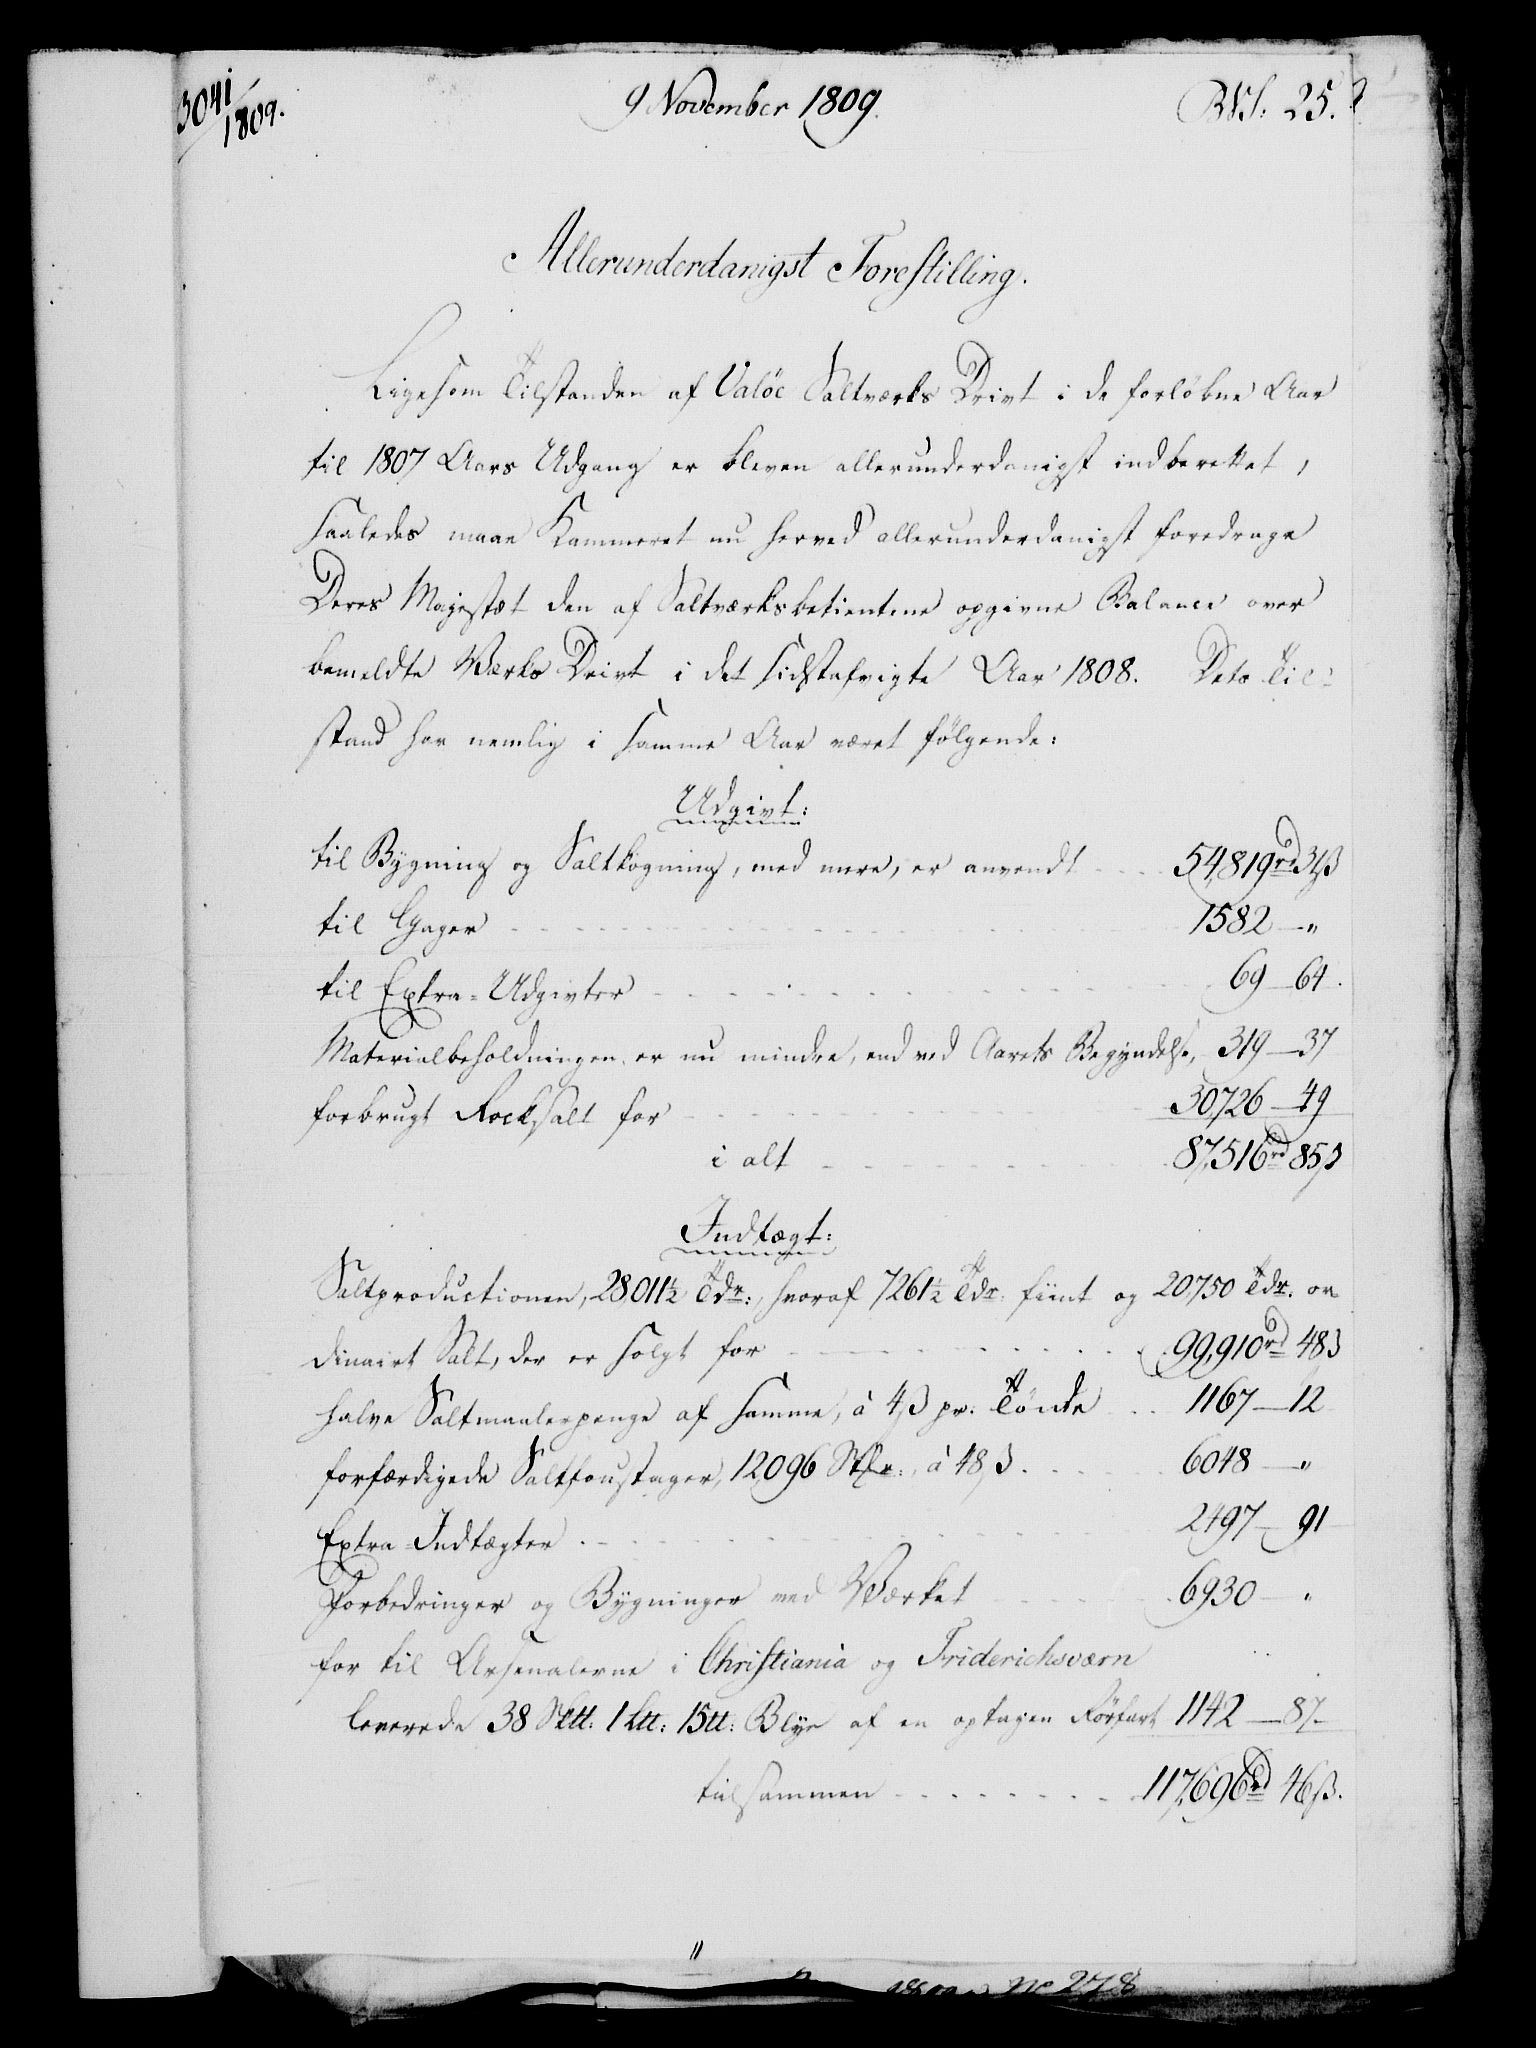 3041/1809.
9 November 1809.
RKl: 25.
Allerunderdanigst Forestilling.
Ligesom Tilstanden af Valöe Saltværks Drivt i de forløbne Aar
til 1807 Aars Udgang er bleven allerunderdanigst indberettet,
saaledes maae Kammeret nu herved allerunderdanigst foredrage
Deres Majestæt den af Saltværksbetientene opgivne Balance over
bemeldte Værks Drivt i det sidstafvigte Aar 1808. Dets Til-
stand har nemlig i samme Aar været følgende:
Udgivt:
til Bygning og Saltkogning, med mere, er anvendt 54,819 rd 31 ß
til Gager 1582 — "
til Extra-Udgivter 69 — 64.
Materialbeholdningen er nu mindre, end ved Aarets Begyndelse, 319 — 37
forbrugt Rocksalt for 30,726 — 49
i alt 87,516 rd 85 ß
Indtægt:
Saltproductionen, 28,011½ Tdr:, hvoraf 7261½ Tdr. fiint og 20,750 Tdr. or
dinairt Salt, der er solgt for 99,910 rd 48 ß
halve Saltmaalerpenge af samme, à 4 ß pr. Tönde 1167 — 12
forfærdigede Saltfoustager, 12,096 Stkr:, à 48 ß. 6048 — "
Extra-Indtægter 2497 — 91
Forbedringer og Bygninger ved Værket 6930 — "
for til Arsenalerne i Christiania og Friderichsværn
leverede 38 Sktt: 1 Ltt: 15 tt: Blye af en optagen Rörfart 1142 — 87
tilsammen 117,696 rd 46 ß.
No 278